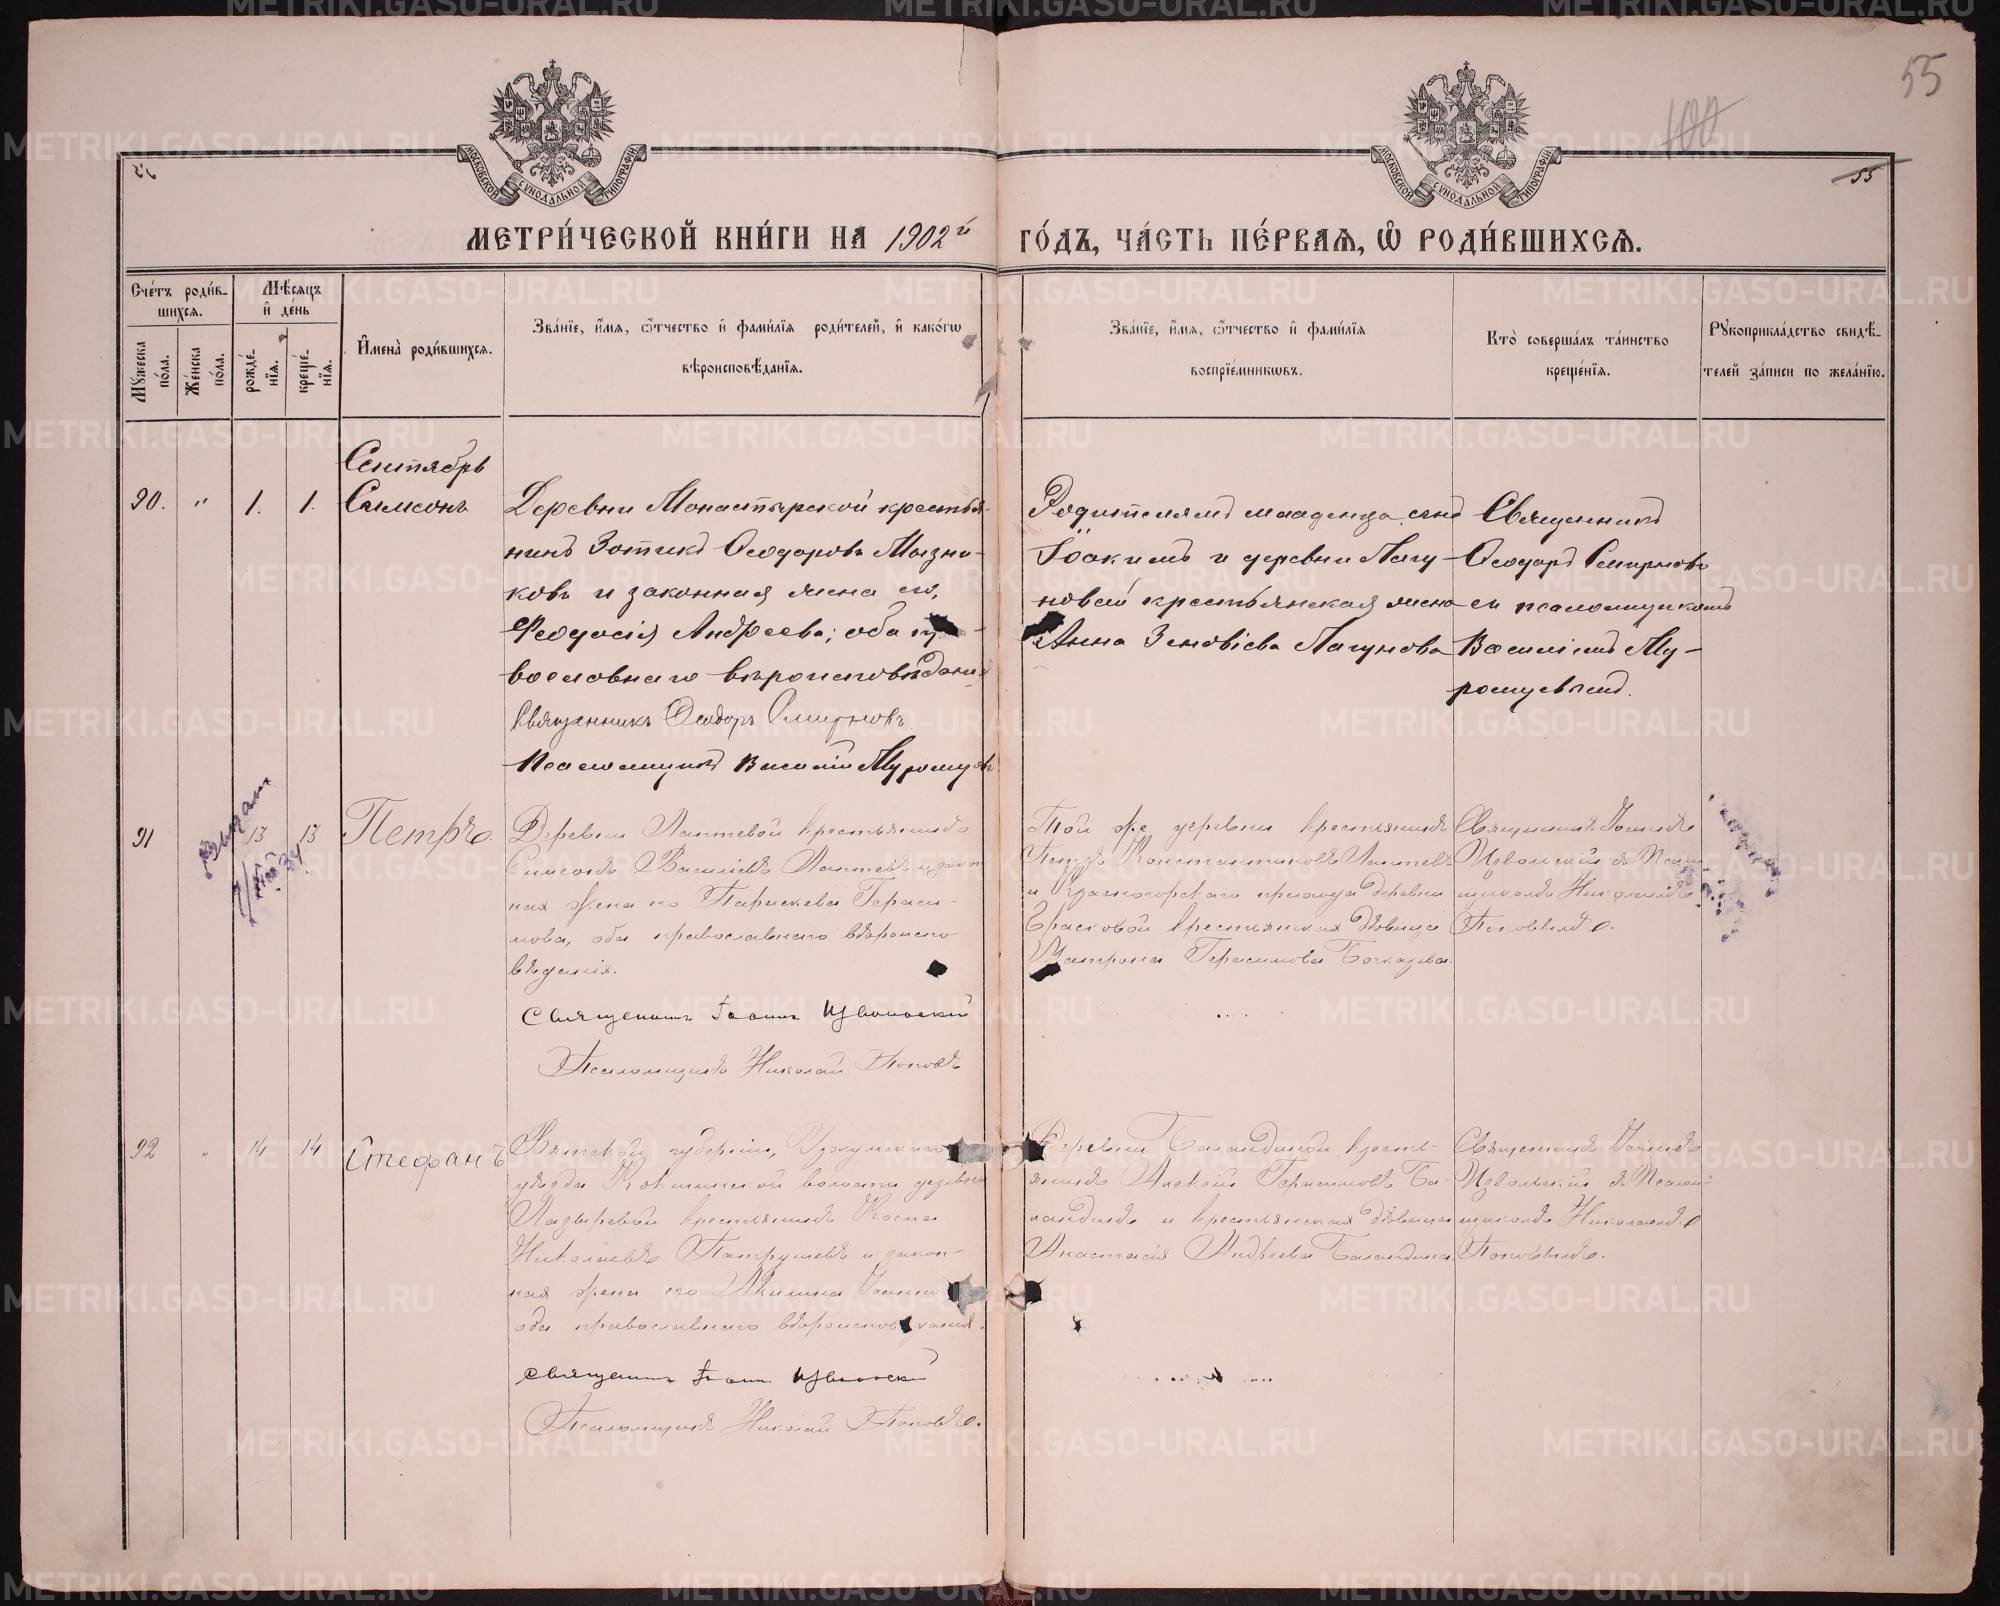 55
100
55
МОСКОВСКОЙ СУНОДАЛЬНОЙ ТИПОГРАФІИ
МОСКОВСКОЙ СУНОДАЛЬНОЙ ТИПОГРАФІИ
МЕТРИ́ЧЕСКОЙ КНИ́ГИ НА 1902й ГО́ДЪ, ЧА́СТЬ ПЕ́РВАѦ, Ѽ РОДИ́ВШИХСѦ.
Сче́тъ роди́в-
шихся.
Мѣ́сяцъ
и҆ де́нь
Мꙋ́жеска по́ла.
Же́нска по́ла.
рожде́-нїя.
креще́-нїя.
И҆мена̀ роди́вшихся.
Зва́нїе, и҆́мя, ѻ҆́тчество и҆ фами́лїя роди́телей, и҆ како́гѡ
вѣроисповѣ́данїя.
Зва́нїе, и҆́мя, ѻ҆́тчество и҆ фами́лїя
воспрїе́мникѡвъ.
Кто̀ соверша́лъ та́инство
креще́нїя.
Рꙋкоприкла́дство свидѣ́-
телей за́писи по жела́нїю.
Сентябрь
90. " 1. 1. Симеонъ
Деревни Монастырской крестья-
нинъ Зотикъ Ѳеодоровъ Мызни-
ковъ и законная жена его,
Ѳеодосія Андреева; оба
вославнаго вѣроисповѣдани
Священникъ Ѳеодоръ Смирновъ
Псаломщикъ Василій Муромцевъ
Родителямъ младенца сынъ
Іоакимъ и деревни Лагу-
новой крестьянская жена
Анна Зеновіева Лагунова
Священникъ
Ѳеодоръ Смирновъ
съ псаломщикомъ
Василіемъ Му-
ромцевымъ.
91 13 13 Петръ.
Деревни Лаптевой крестьянинъ
Симеонъ Васильевъ Лаптевъ и закон
ная жена его Параскева Гераси-
мова, оба православнаго вѣроиспо
вѣданія.
Священникъ Іоаннъ Извольскій
Псаломщикъ Николай Поповъ
Той же деревни крестьянинъ
Петръ Константиновъ Лаптевъ
и Красногорскаго прихода деревни
крестьянская дѣвица
Матрона Герасимова
Священникъ Іоаннъ
Извольскій съ Псалом-
щикомъ Николаемъ
Поповымъ.
92 " 14 14 Стефанъ
Вятской губерніи, Уржумскаго
уѣзда волости деревни
крестьянинъ Косма
Николаевъ Патрушевъ и закон-
ная жена его Акилина
оба православнаго вѣроисповѣданія.
Священникъ Іоаннъ Извольскій
Псаломщикъ Николай Поповъ.
Деревни Баландиной кресть-
янинъ Алексій Герасимовъ Ба-
ландинъ и крестьянская дѣвица
Анастасія Андреева Баландина
Священникъ Іоаннъ
Извольскій съ Псалом-
щикомъ Николаемъ
Поповымъ.
METRIKI.GASO-URAL.RU